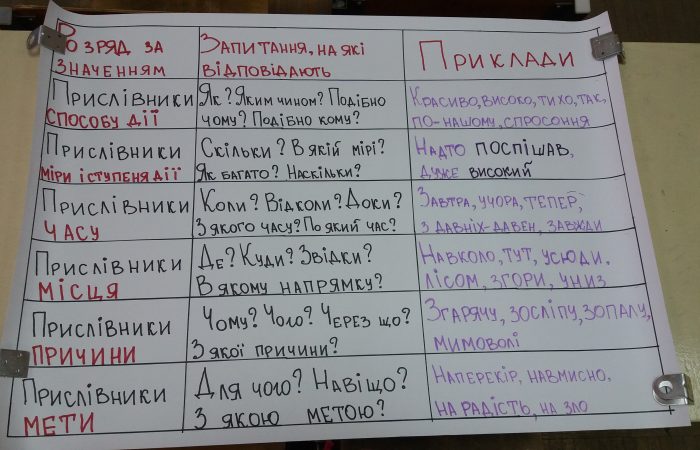 Розряд за
значенням
Запитання, на які
відповідають
Приклади
Прислівники
способу дії
Як? Яким чином? Подібно
чому? Подібно кому?
Красиво, високо, тихо, так,
по-нашому, спросоння
Прислівники
міри і ступеня дії
Скільки? В якій мірі?
Як багато? Наскільки?
Надто поспішав,
дуже високий
Прислівники
часу
Коли? Відколи? Доки?
З якого часу? По який час?
Завтра, учора, тепер,
з давніх-давен, завжди
Прислівники
місця
Де? Куди? Звідки?
В якому напрямку?
Навколо, тут, усюди,
лісом, згори, униз
Прислівники
причини
Чому? Чого? Через що?
З якої причини?
Згарячу, зосліпу, зопалу,
мимоволі
Прислівники
мети
Для чого? Навіщо?
З якою метою?
Наперекір, навмисно,
на радість, на зло